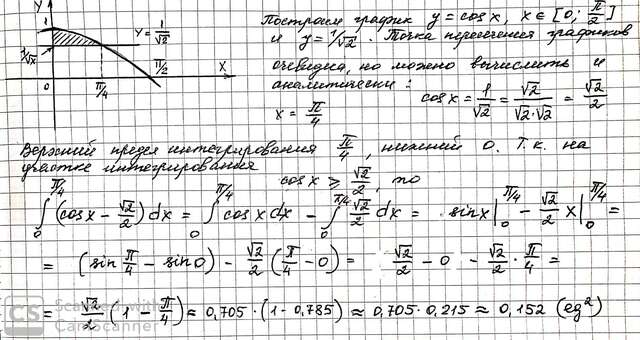 Y
1
y = 1/√2
1/√x
0
π/4
π/2
X
Построим график y = cos x, x ∈ [0; π/2]
и y = 1/√2. Точка пересечения графиков
очевидна, но можно вычислить и
аналитически: cos x = 1/√2 = √2/(√2·√2) = √2/2
x = π/4
Верхний предел интегрирования π/4, нижний 0. Т.к. на
участке интегрирования
cos x ≥ √2/2, то
∫₀^(π/4) (cos x − √2/2) dx = ∫₀^(π/4) cos x dx − ∫₀^(π/4) √2/2 dx = sin x |₀^(π/4) − √2/2 x |₀^(π/4) =
= (sin π/4 − sin 0) − √2/2 (π/4 − 0) = √2/2 − 0 − √2/2 · π/4 =
= √2/2 (1 − π/4) ≈ 0,705 · (1 - 0,785) ≈ 0,705 · 0,215 ≈ 0,152 (ед²)
CS Scanned with
CamScanner